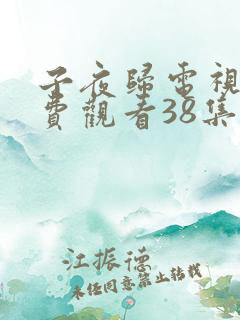 子夜歸電視
費觀看38集
江振德
未经同意禁止转载